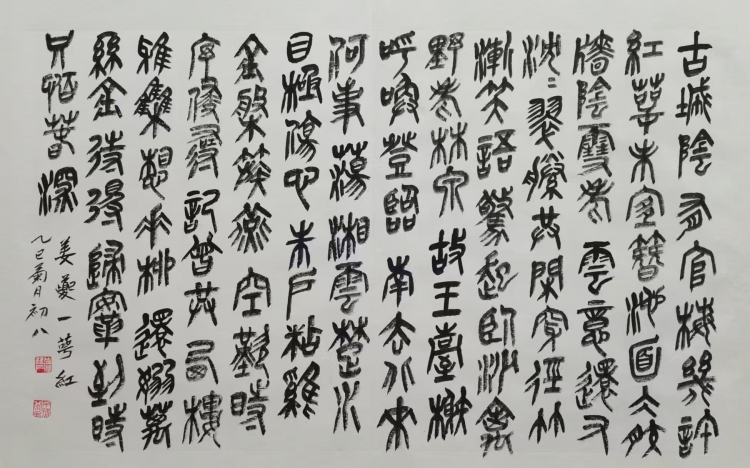 古城陰有官梅幾許
紅萼未宜簪池面冰膠
牆陰雪老雲意還又
沈〻翠藤共閑穿徑竹
漸笑語驚起臥沙禽
野老林泉故王臺榭
呼喚登臨南去北來
何事蕩湘雲楚水
目極傷心朱戶粘雞
金盤簇燕空歎時
序侵尋記曾共西樓
雅雧想垂柳還嫋萬
絲金待得歸鞍到時
只怕春深
姜夔一萼紅
乙巳菊月初八